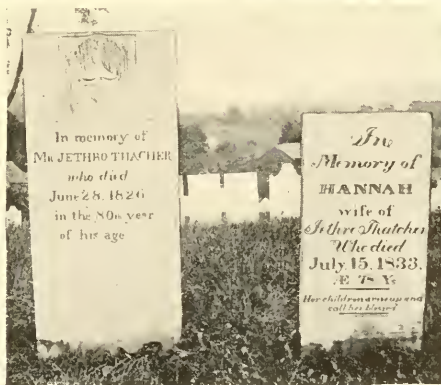 In memory of
Mr JETHRO THACHER
who died
June 28, 1826
in the 80th year
of his age
In
Memory of
HANNAH
wife of
Jethro Thatcher
Who died
July, 15, 1833,
Æ Ys
Her children arise up and
call her blessed